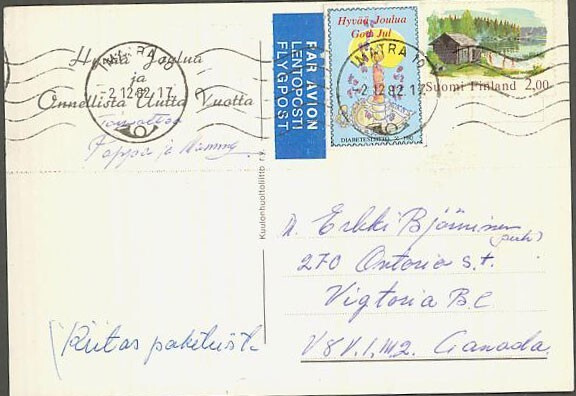 Hyvää Joulua
ja
Onnellista Uutta Vuotta
toivottaa
Pappa ja Mamma
Kiitos paketeista
Kuulonhuoltoliitto r.y.
PAR AVION
LENTOPOSTI
FLYGPOST
Hyvää Joulua
God Jul
DIABETESLIITTO
Suomi Finland 2,00
IMATRA 10
-2.12.82.17
IMATRA 10
-2.12.82.17
Erkki
270 Ontorio s.t.
Vigtoria B.C
V8V.1.M2. Canada.